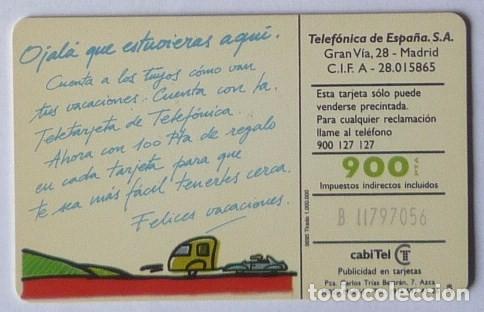 Ojalá que estuvieras aquí.
Cuenta a los tuyos cómo van
tus vacaciones. Cuenta con la
Teletarjeta de Telefónica.
Ahora con 100 Pta de regalo
en cada tarjeta para que
te sea más fácil tenerles cerca.
Felices vacaciones.
Telefónica de España. S.A.
Gran Vía, 28 - Madrid
C.I.F. A - 28.015865
Esta tarjeta sólo puede
venderse precintada.
Para cualquier reclamación
llame al teléfono
900 127 127
900 PTA
Impuestos indirectos incluidos
B 11797056
Tirada 1.000.000
cabiTel CT
Publicidad en tarjetas
Pza. Carlos Trías Beltrán, 7. Azca
todocoleccion